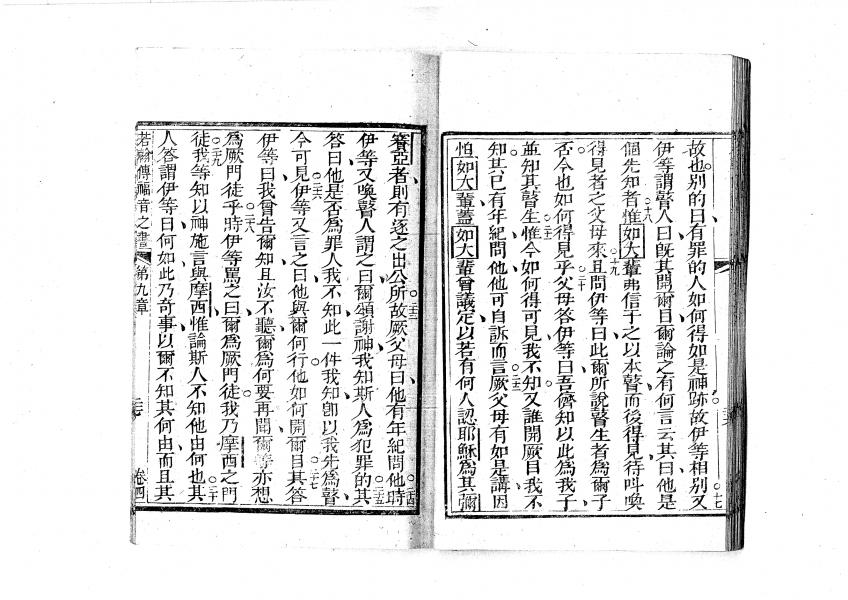 故也別的曰有罪的人如何得如是神跡故伊等相別又○十七
伊等謂瞽人曰既其開爾目爾論之有何言云其曰他是
個先知者○十八惟如大輩弗信于之以本瞽而後得見待叫喚
得見者之父母來○十九且問伊等曰此爾所說瞽生者為爾子
否今也如何得見乎○二十父母答伊等曰吾儕知以此為我子
並知其瞽生○二一惟今如何得可見我不知又誰開厥目我不
知其已有年紀問他他可自訴而言○二二厥父母有如是講因
怕如大輩蓋如大輩曾議定以若有何人認耶穌為其彌
賽亞者則有逐之出公所○二三故厥父母曰他有年紀問他○二四時
伊等又喚瞽人謂之曰爾頌謝神我知斯人為犯罪的○二五其
答曰他是否為罪人我不知此一件我知卽以我先為瞽
今可見○二六伊等又言之曰他與爾何行他如何開爾目○二七其答
伊等曰我曾告爾知且汝不聽爾為何要再聞爾等亦想
為厥門徒乎○二八時伊等罵之曰爾為厥門徒我乃摩西之門
徒○二九我等知以神施言與摩西惟論斯人不知他由何也○三十其
人答謂伊等曰何如此乃奇事以爾不知其何由而且其
若翰傳福音之書 第九章 卷四